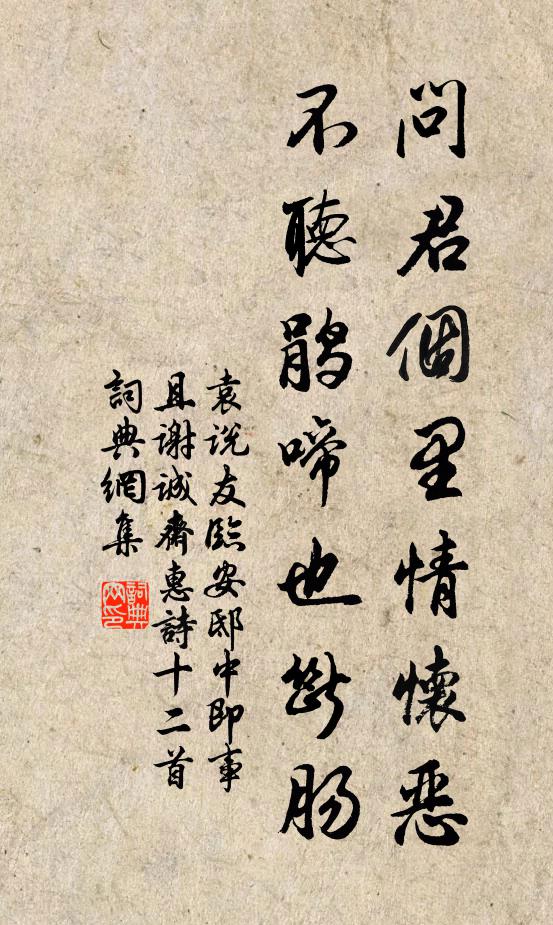 問君個里情懷惡
不聽鵑啼也斷腸
袁说友臨安邸中即事
且謝诚齋惠詩十二首
詞典網集
詞典
网印